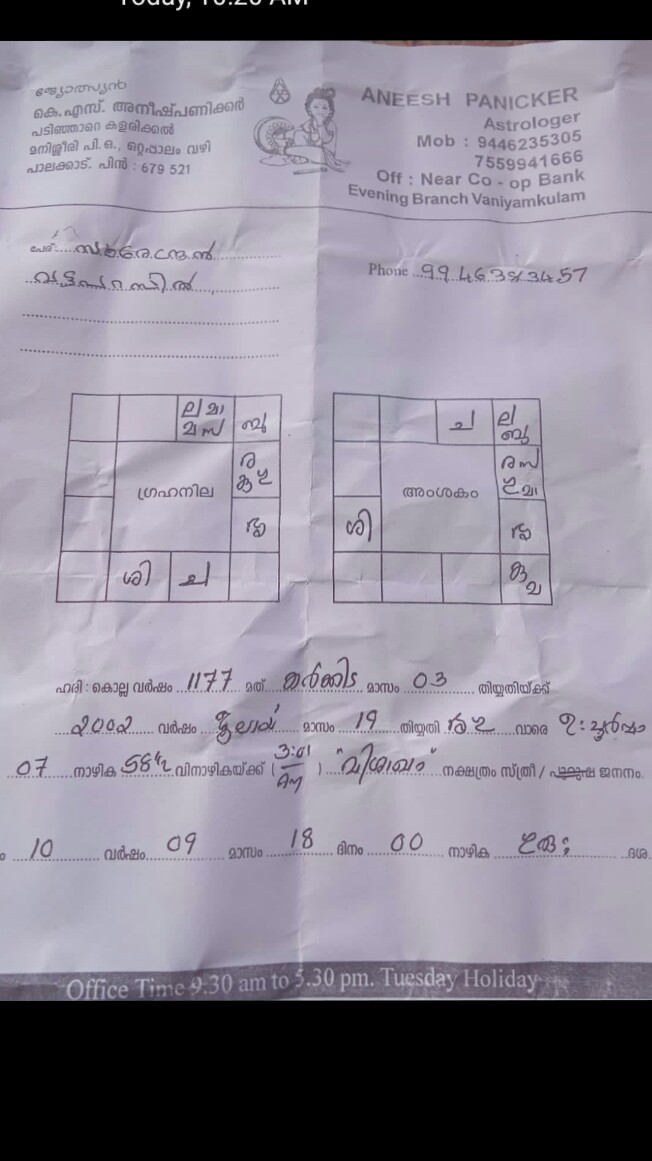 Today, 10:20 AM
ജ്യോത്സ്യൻ
കെ.എസ്. അനീഷ്പണിക്കർ
പടിഞ്ഞാറെ കളരിക്കൽ
മനിശ്ശീരി പി.ഒ., ഒറ്റപ്പാലം വഴി
പാലക്കാട്. പിൻ : 679 521
ANEESH PANICKER
Astrologer
Mob : 9446235305
7559941666
Off : Near Co - op Bank
Evening Branch Vaniyamkulam
പേര്
Phone 9946383457
ല മാ
ബു
ര
ഗ്രഹനില
ശു
ശി
ച
ച
ല
ബു
ര സ
അംശകം
ശി
ശു
ഹരി : കൊല്ല വർഷം 1177 മത് കർക്കിട മാസം 03 തിയ്യതിയ്ക്ക്
൨൦൦൨ വർഷം ജൂലായ് മാസം 19 തിയ്യതി വാരെ
07 നാഴിക 58½ വിനാഴികയ്ക്ക് ( 3:01 ) "വിശാഖം" നക്ഷത്രം സ്ത്രീ / പുരുഷ ജനനം.
10 വർഷം 09 മാസം 18 ദിനം 00 നാഴിക ദശ
Office Time 9.30 am to 5.30 pm. Tuesday Holiday